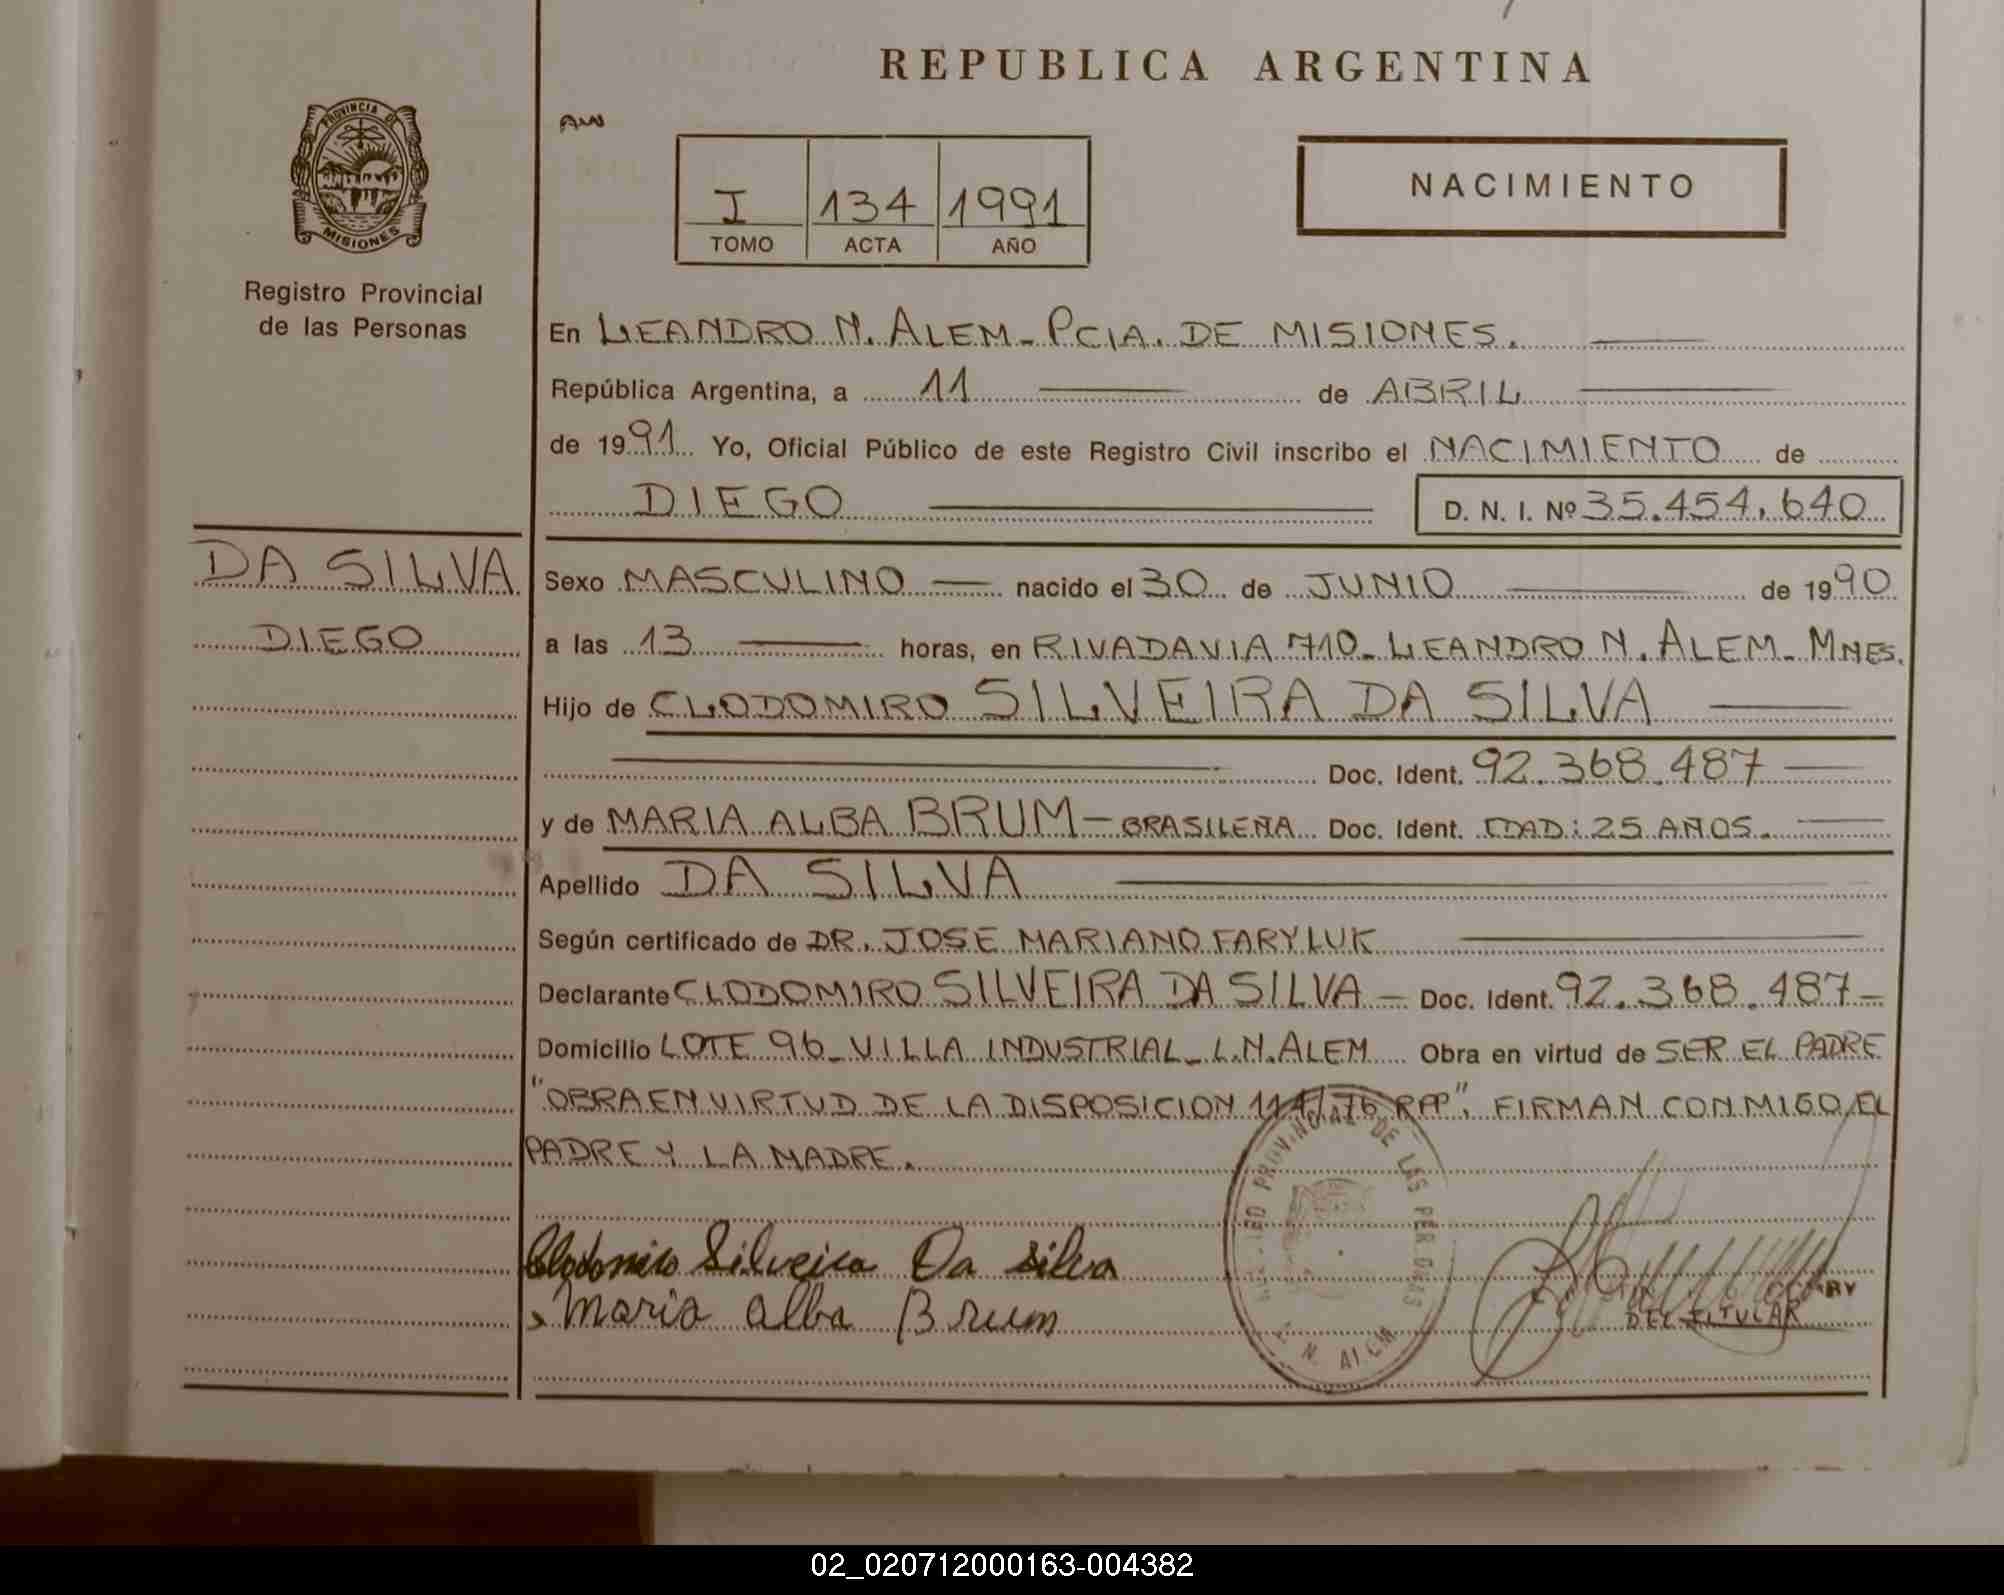 REPUBLICA ARGENTINA
PROVINCIA DE
MISIONES
Registro Provincial
de las Personas
I 134 1991
TOMO ACTA AÑO
NACIMIENTO
En LEANDRO N. ALEM - PCIA. DE MISIONES.
República Argentina, a 11 de ABRIL
de 1991 Yo, Oficial Público de este Registro Civil inscribo el NACIMIENTO de
DIEGO D. N. I. Nº 35.454.640
DA SILVA
DIEGO
Sexo MASCULINO nacido el 30 de JUNIO de 1990
a las 13 horas, en RIVADAVIA 710 - LEANDRO N. ALEM - MNES.
Hijo de CLODOMIRO SILVEIRA DA SILVA
Doc. Ident. 92.368.487
y de MARIA ALBA BRUM - BRASILEÑA Doc. Ident. EDAD: 25 AÑOS.
Apellido DA SILVA
Según certificado de DR. JOSE MARIANO FARYLUK
Declarante CLODOMIRO SILVEIRA DA SILVA - Doc. Ident. 92.368.487 -
Domicilio LOTE 96 - VILLA INDUSTRIAL - L.N. ALEM Obra en virtud de SER EL PADRE
"OBRA EN VIRTUD DE LA DISPOSICION 114/76 RPP". FIRMAN CONMIGO EL
PADRE Y LA MADRE.
Clodomiro Silveira Da Silva
Maria Alba Brum
PROVINCIAL DE LAS PERSONAS
L. N. ALEM
DEL TITULAR
02_020712000163-004382